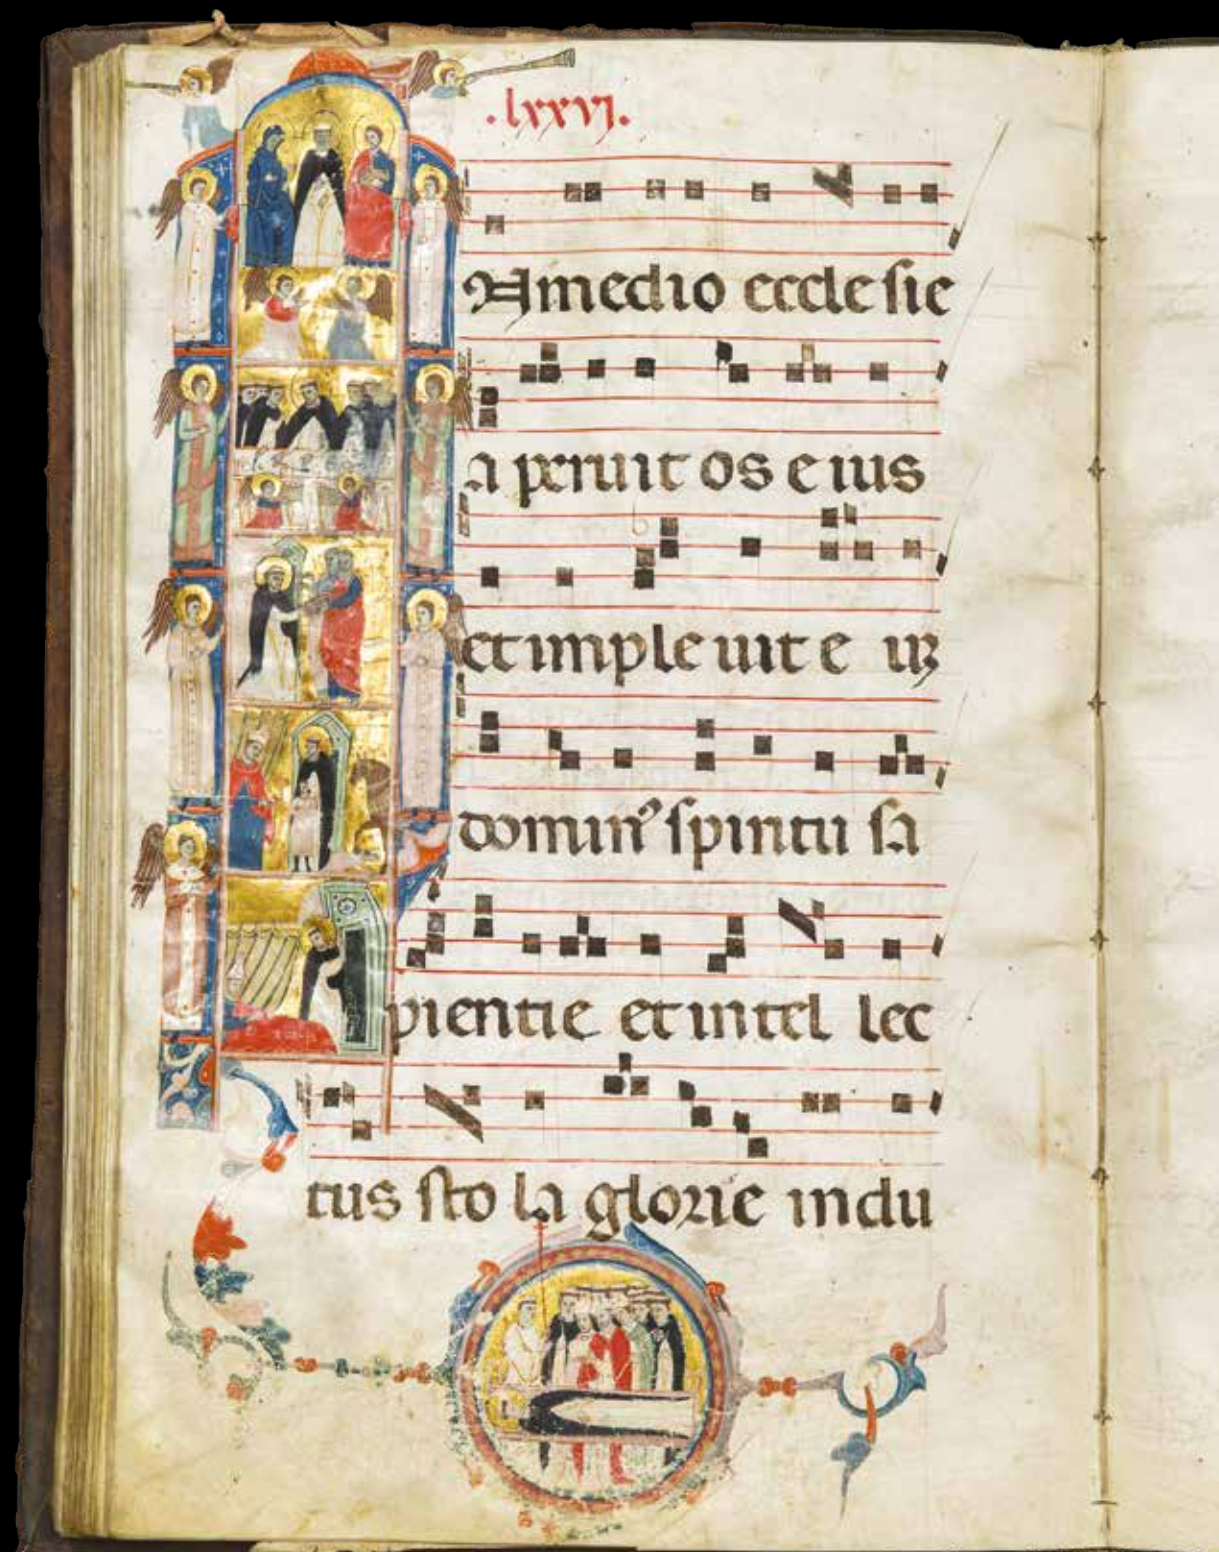 .lxxvj.
A medio eccle sie
a peruit os e ius
et imple uit e uꝫ
dominꝰ spiritu sa
pientie et intel lec
tus sto la glorie indu